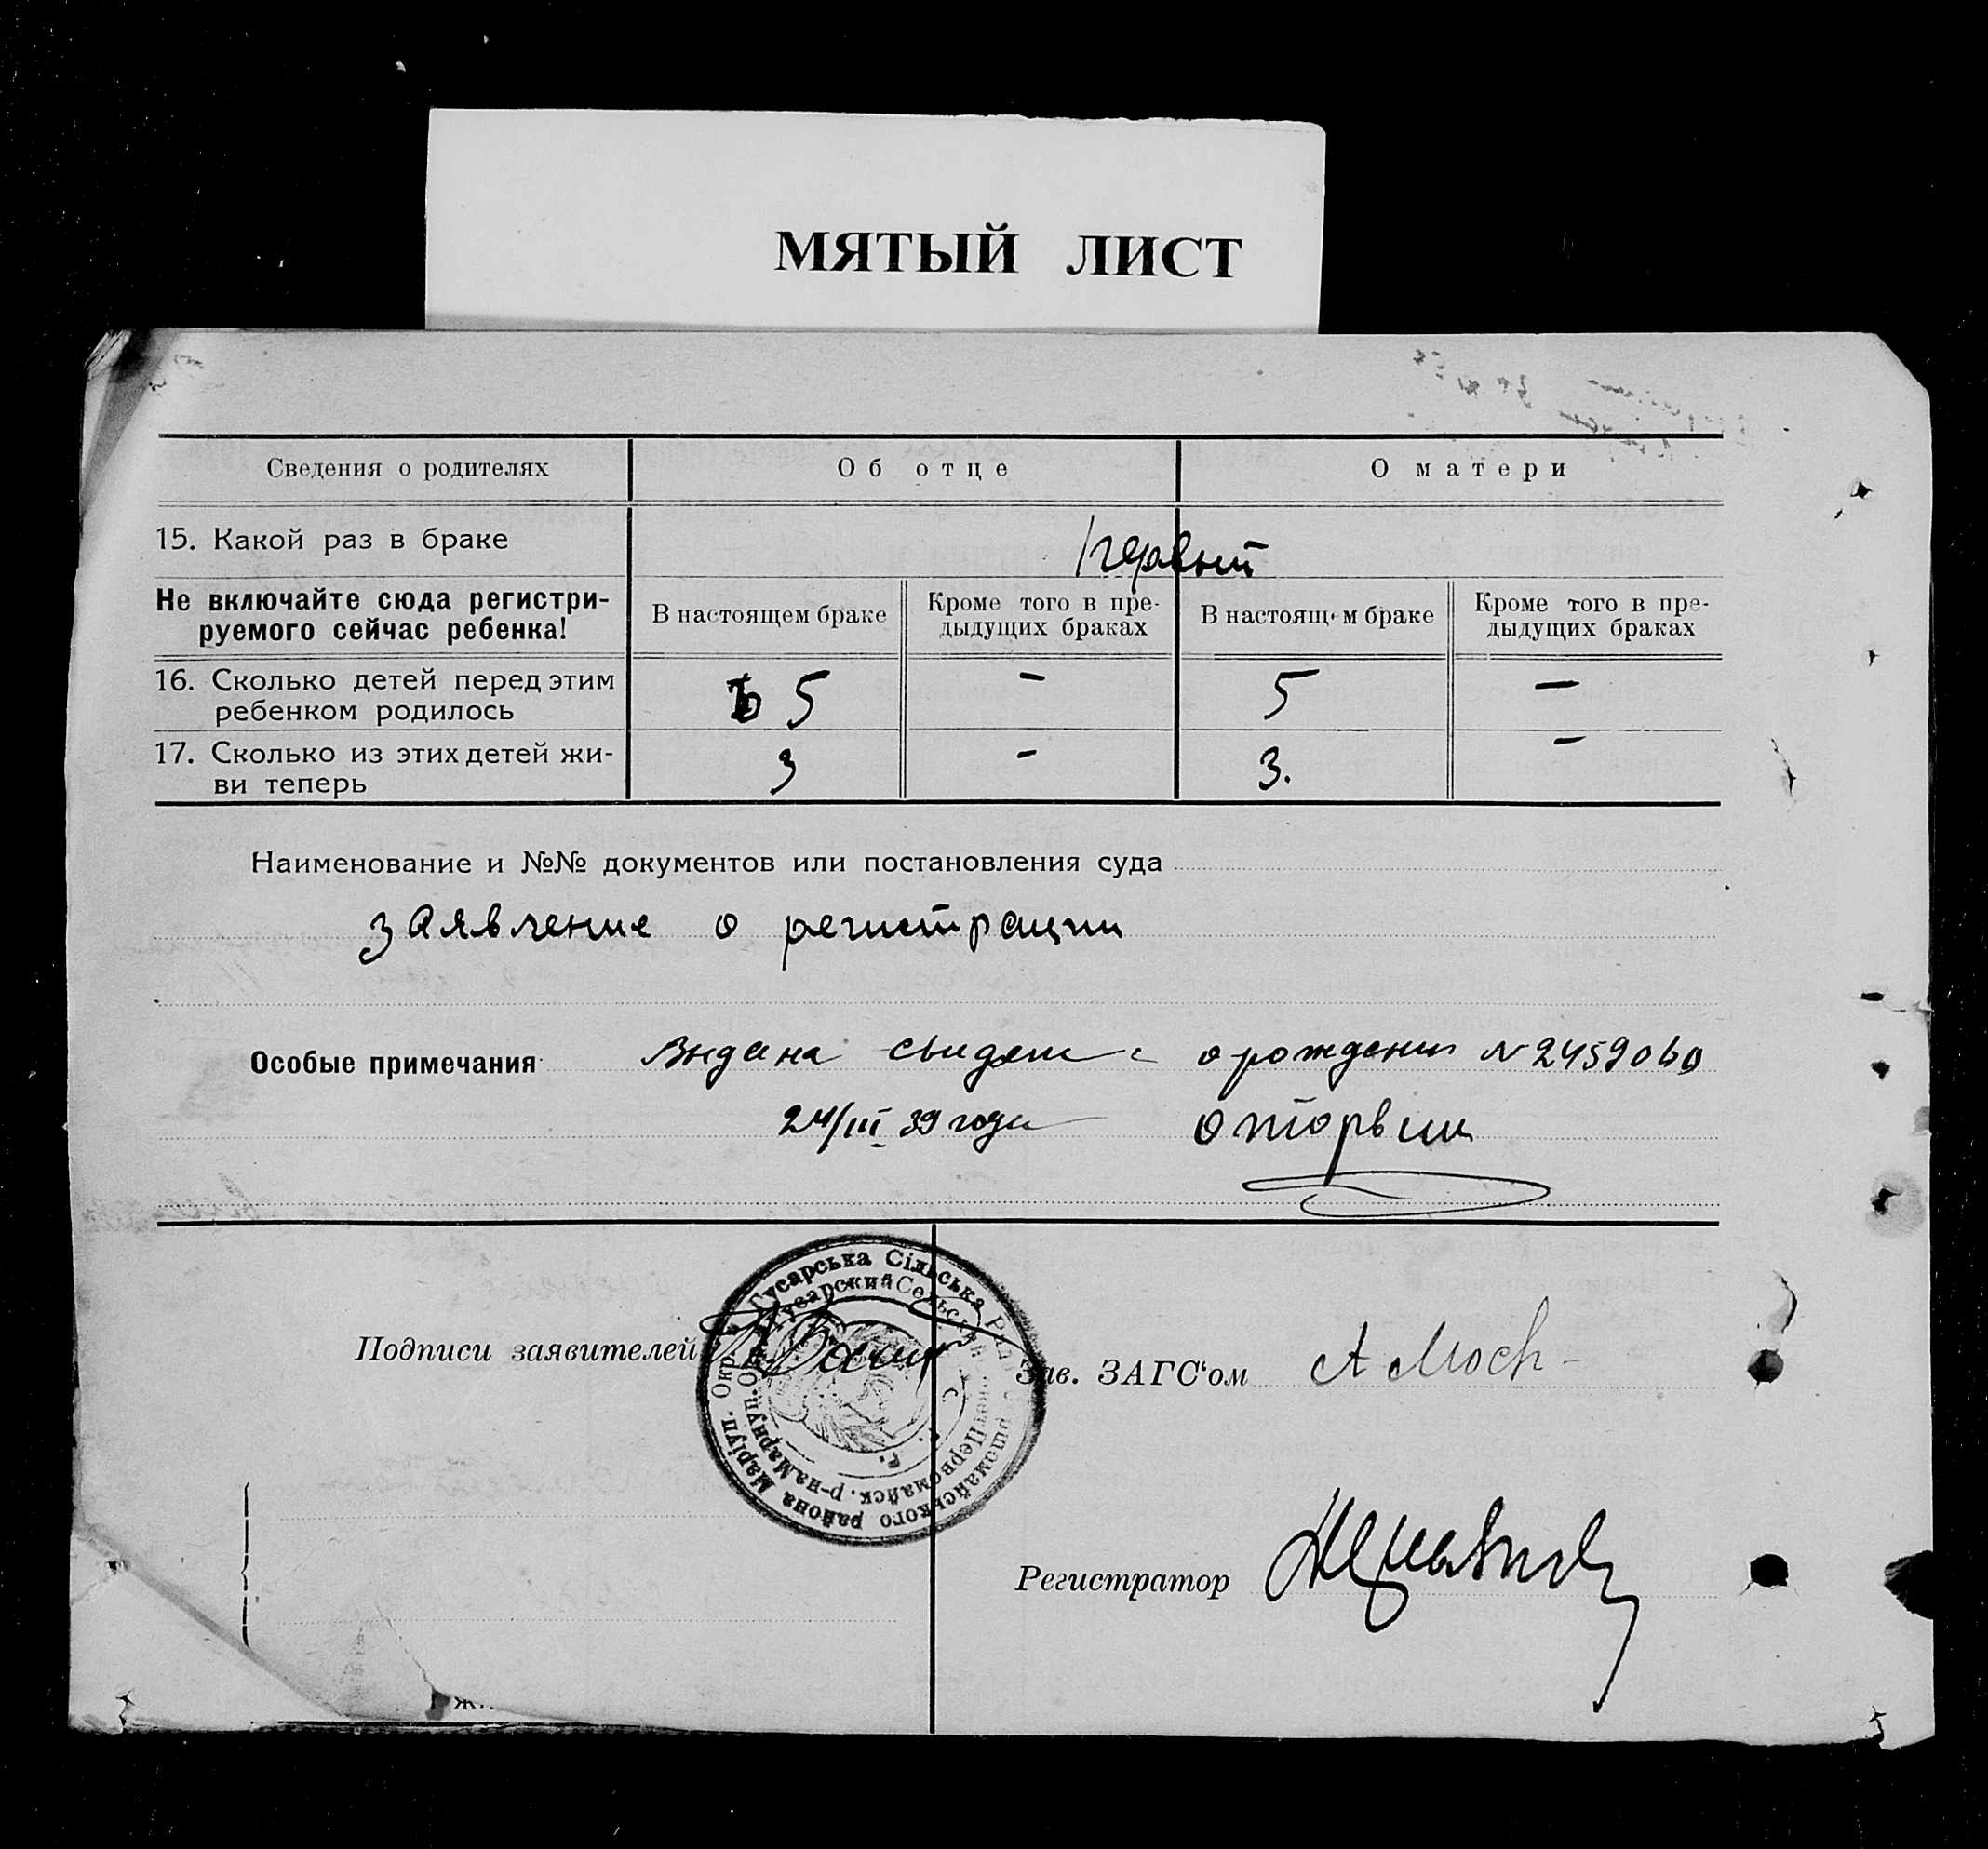 МЯТЫЙ ЛИСТ
Сведения о родителях
Об отце
О матери
15. Какой раз в браке
первый
Не включайте сюда регистри-
руемого сейчас ребенка!
В настоящем браке
Кроме того в пре-
дыдущих браках
В настоящем браке
Кроме того в пре-
дыдущих браках
16. Сколько детей перед этим
ребенком родилось
5
–
5
–
17. Сколько из этих детей жи-
ви теперь
3
–
3.
–
Наименование и №№ документов или постановления суда
заявление о регистрации
Особые примечания
Выдана о рождении N 2459060
24/III 39 года
Подписи заявителей
Гусарська Сільська Рада
Гусарский Сельский
Первомайск. р-на Мариуп. Окр.
района Маріуп. Окр.
Зав. ЗАГС‘ом
Регистратор